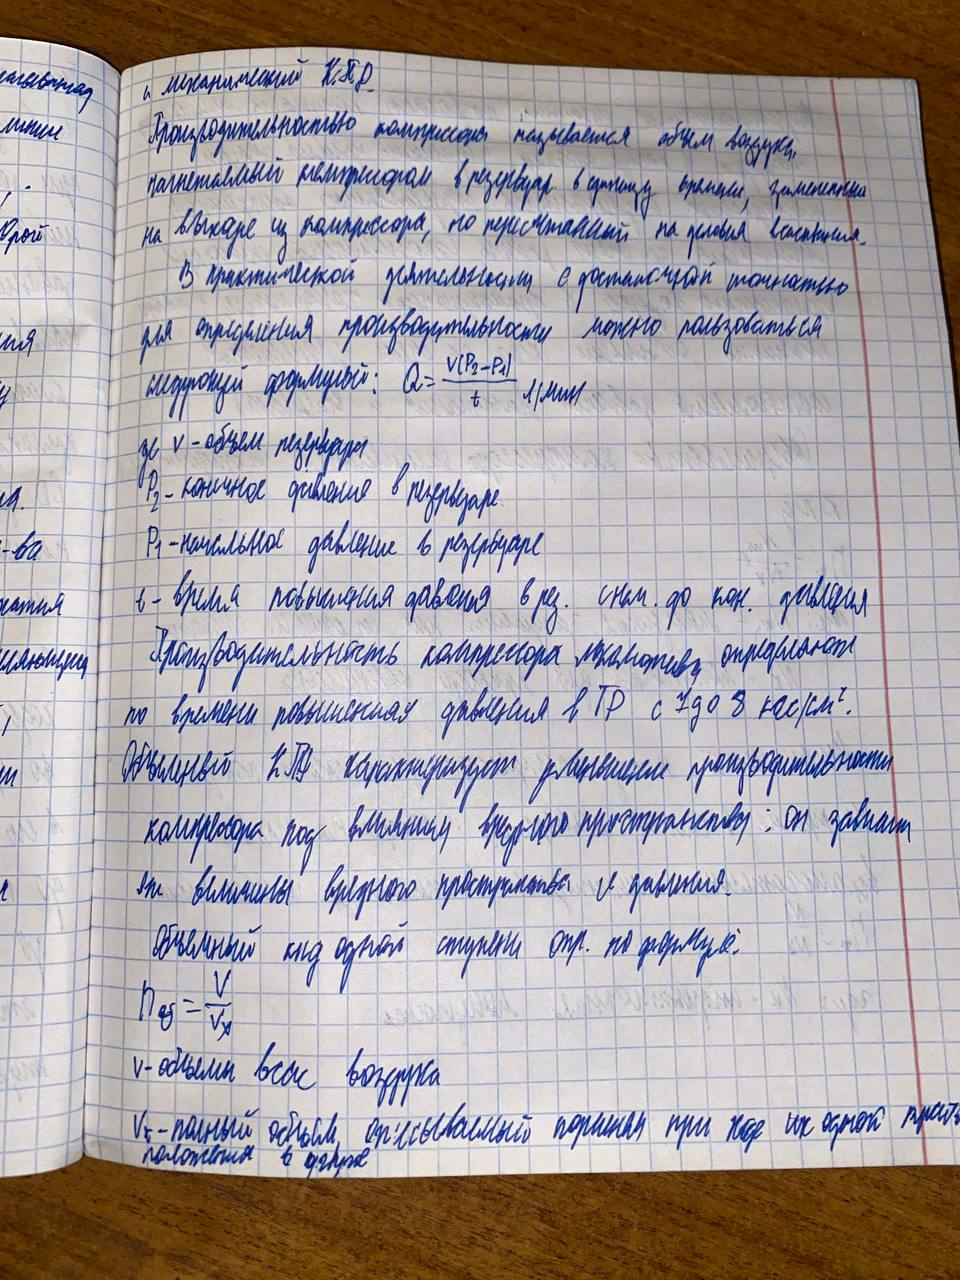 и механический К.П.Д.
Производительностью компрессора называется объем воздуха,
нагнетаемый компрессором в резервуар в единицу времени, измеренный
на выходе из компрессора, но пересчитанный на условия всасывания.
В практической деятельности с достаточной точностью
для определения производительности можно пользоваться
следующей формулой: Q = V(P2-P1)/t л/мин
где V - объем резервуара
P2 - конечное давление в резервуаре.
P1 - начальное давление в резервуаре
t - время повышения давления в рез. с нач. до кон. давления
Производительность компрессора определяют
по времени повышения давления в ГР с 7 до 8 кгс/см².
Объемный КПД характеризует уменьшение производительности
компрессора под влиянием вредного пространства: он зависит
от величины вредного пространства и давления.
Объемный кпд одной ступени опр. по формуле:
ηоб = V/Vх
V - объемы всас воздуха
полный объем, описываемый поршнем при ходе их одной
положения в другое
мыши
трой
ния
-ва
жатия